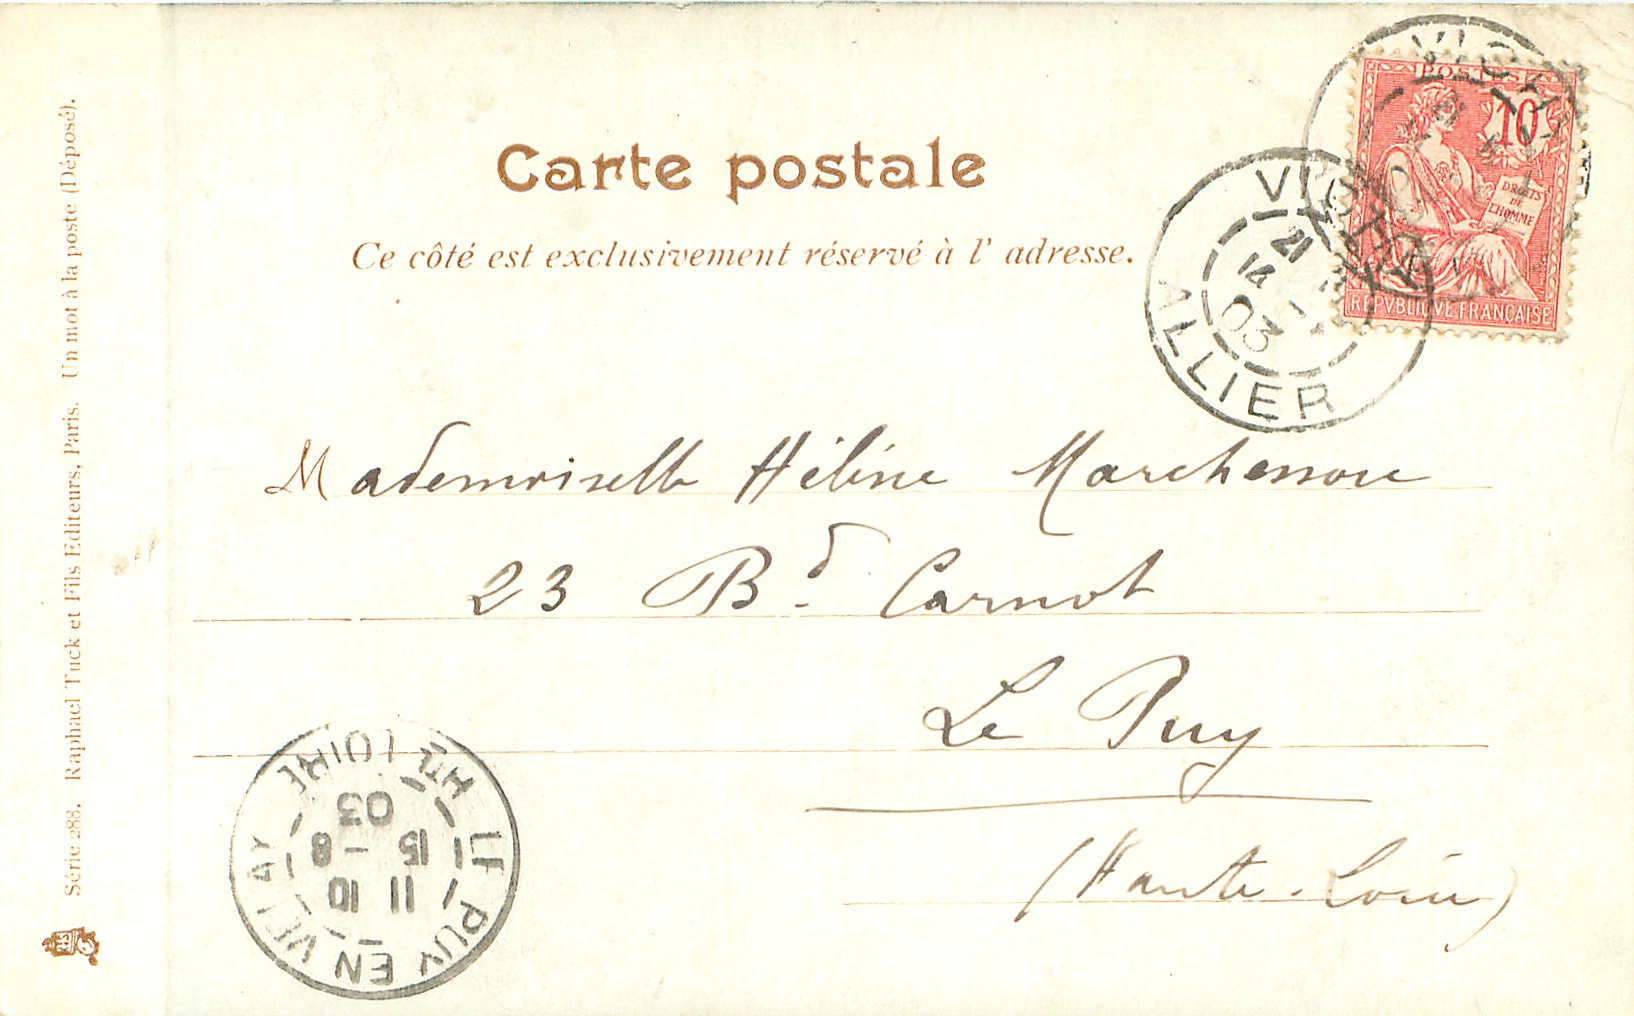 Carte postale
Ce côté est exclusivement réservé à l' adresse.
POSTES
10
DROITS
DE
L'HOMME
REPVBLIQVE FRANÇAISE
VICHY
VICHY
ALLIER
21
14
03
Mademoiselle Hélène Marchessou
23 Bd Carnot
Le Puy
(Haute-Loire)
LE PUY EN VELAY
HTE LOIRE
11 10
15 - 8
03
Série 288. Raphael Tuck et Fils Editeurs, Paris. Un mot à la poste (Déposé).